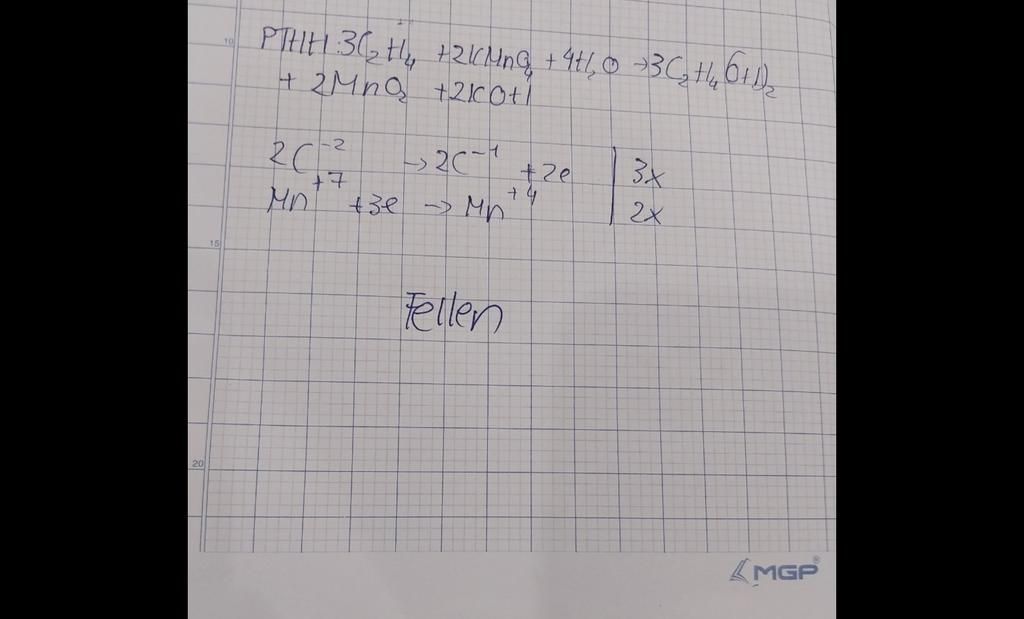 10
PTHH: 3C₂H₄ + 2KMnO₄ + 4H₂O → 3C₂H₄(OH)₂
+ 2MnO₂ + 2KOH
2C⁻² → 2C⁻¹ + 2e | 3x
Mn⁺⁷ + 3e → Mn⁺⁴ | 2x
15
Fellen
20
MGP®